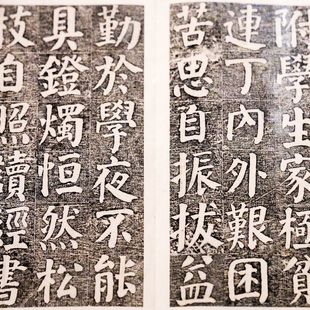 附學生家極貧
連丁內外艱困
苦思自振拔益
勤於學夜不能
具鐙燭恒然松
枝自照讀經書